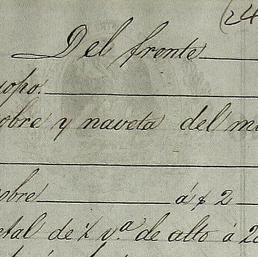 (24
Del frente
copo.
obre y naveta del m
obre á $ 2
etal de ½ v.ª de alto á 2